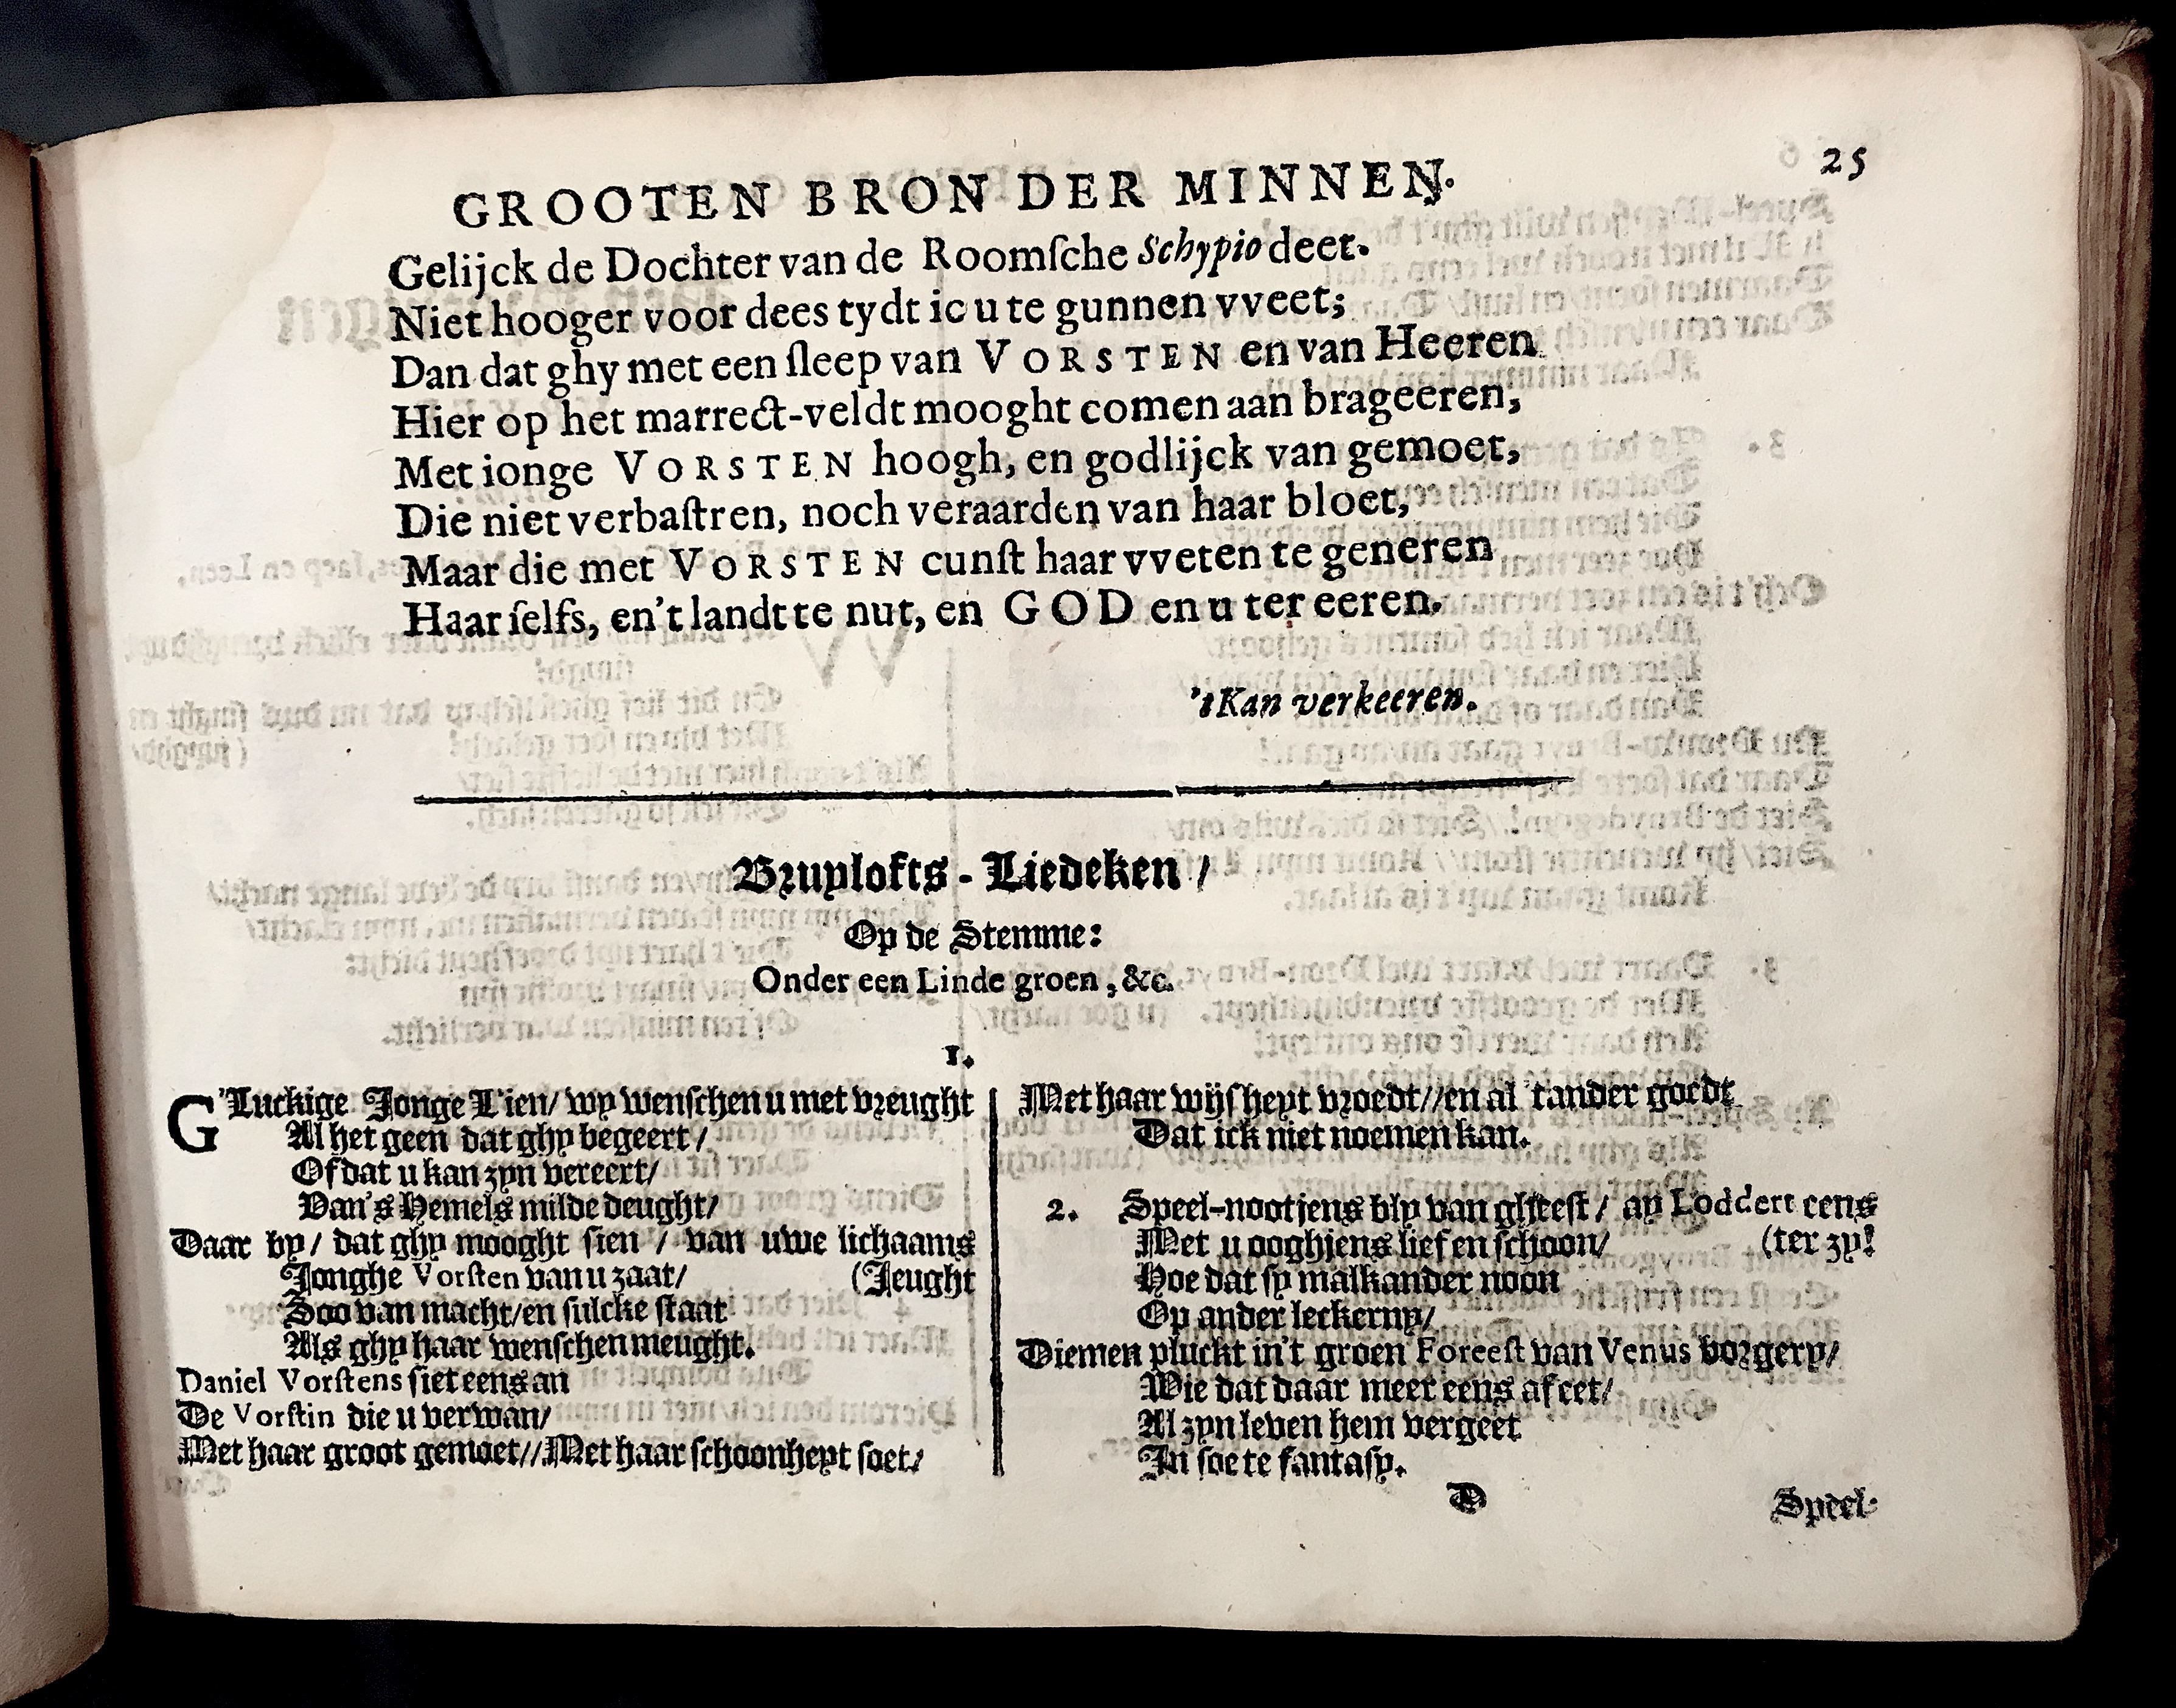 GROOTEN BRON DER MINNEN.
25
Gelijck de Dochter van de Roomſche Schypio deet.
Niet hooger voor dees tydt ic u te gunnen vveet;
Dan dat ghy met een ſleep van VORSTEN en van Heeren
Hier op het marrect-veldt mooght comen aan brageeren,
Met ionge VORSTEN hoogh, en godlijck van gemoet,
Die niet verbaſtren, noch veraarden van haar bloet,
Maar die met VORSTEN cunſt haar vveten te generen
Haar ſelfs, en't landt te nut, en GOD en u ter eeren.
't Kan verkeeren.
Bruylofts-Liedeken/
Op de Stemme:
Onder een Linde groen, &c.
1.
G'Luckige Jonge L'ien/ wy wenſchen u met vreught
Al het geen dat ghy begeert/
Of dat u kan zyn vereert/
Van's Hemels milde deught/
Daar by/ dat ghy mooght ſien/ van uwe lichaams
Jonghe Vorſten van u zaat/ (Jeught
Soo van macht/en ſulcke ſtaat
Als ghy haar wenſchen meught.
Daniel Vorſtens ſiet eens an
De Vorſtin die u verwan/
Met haar groot gemoet//Met haar ſchoonheyt ſoet/
Met haar wijſheyt vroedt//en al 'tander goedt
Dat ick niet noemen kan.
2. Speel-nootjens bly van gheeſt/ ay Loddert eens
Met u ooghjens lief en ſchoon/ (ter zy!
Hoe dat ſy malkander noon
Op ander leckerny/
Diemen pluckt in't groen Foreeſt van Venus borgery/
Wie dat daar meer eens af eet/
Al zyn leven hem vergeet
In ſoete fantaſy.
D
Speel-